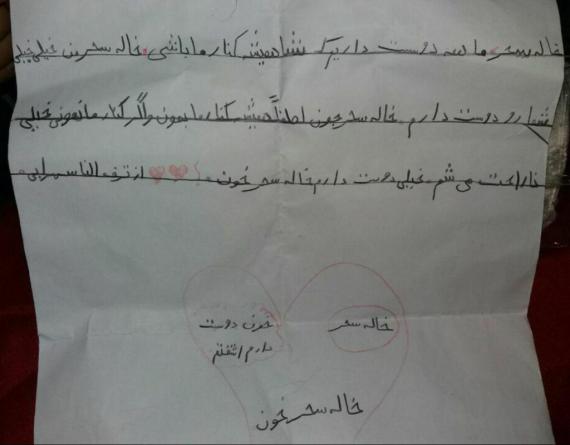 خاله سحر ما همه دوست داریم که شما همیشه کنار ما باشی خاله سحر من خیلی خیلی
شما رو دوست دارم خاله سحر جون لطفاً همیشه کنار ما بمون و اگر کنار ما نمونی خیلی
ناراحت می شم. خیلی دوست دارم خاله سحر خون از طرف الناسمرابی
خاله سحر
خون دوست
دارم
خاله سحر خون